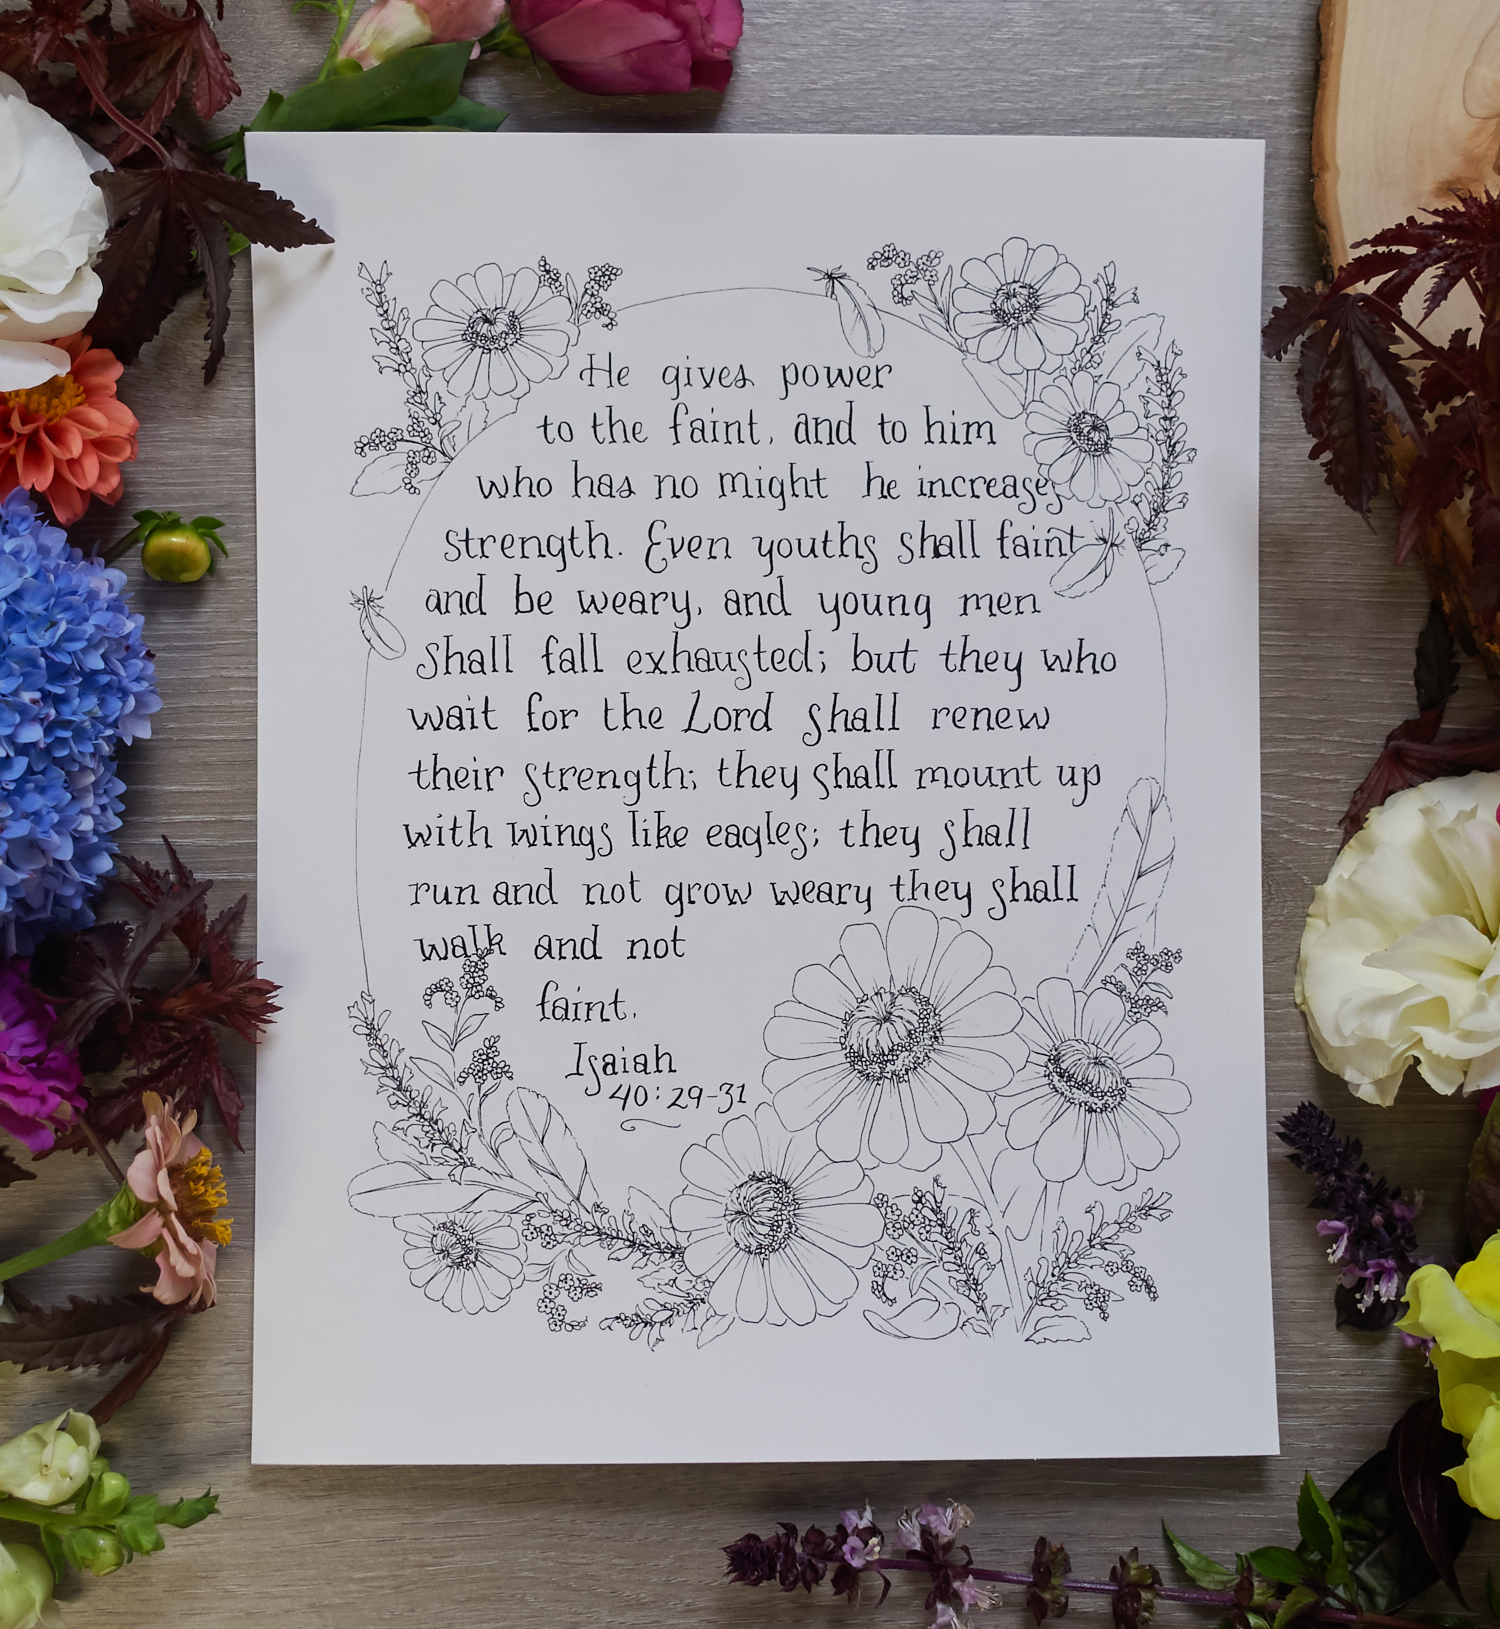 He gives power
to the faint, and to him
who has no might he increases
strength. Even youths shall faint
and be weary, and young men
shall fall exhausted; but they who
wait for the Lord shall renew
their strength; they shall mount up
with wings like eagles; they shall
run and not grow weary they shall
walk and not
faint.
Isaiah
40:29-31